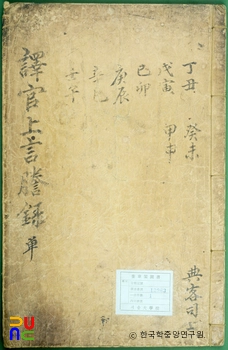 譯官上言謄錄 單
丁丑 癸未
戊寅 甲申
己卯
庚辰
典客司上
한국학중앙연구원